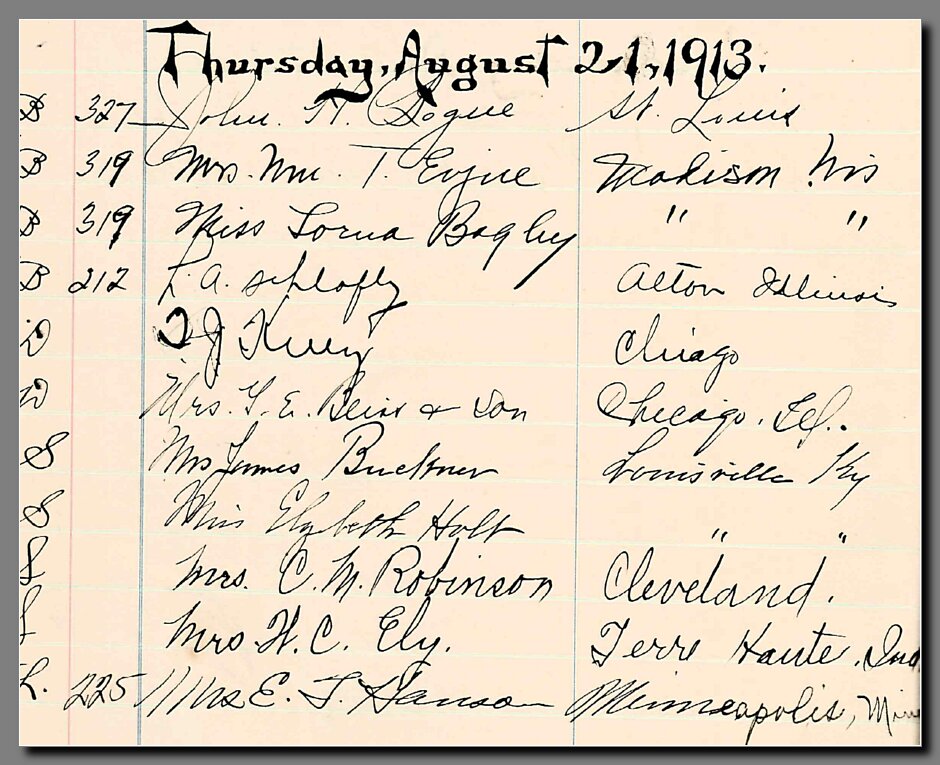 Thursday, August 21, 1913.
B 327 John. H. Bogue St. Louis
B 319 Mrs. Wm. T. Evjue Madison Wis
B 319 Miss Lorna Bagley " "
B 212 L. A. Schlafly Alton Illinois
D J Chicago
D Mrs. E. & Son Chicago, Ill.
S Mrs James Buckner Louisville Ky
S Miss Elzbeth Holt " "
S Mrs. C. M. Robinson Cleveland.
Mrs H. C. Ely. Terre Haute. Ind
L. 225 Mrs E. T. Hanson Minneapolis, Minn